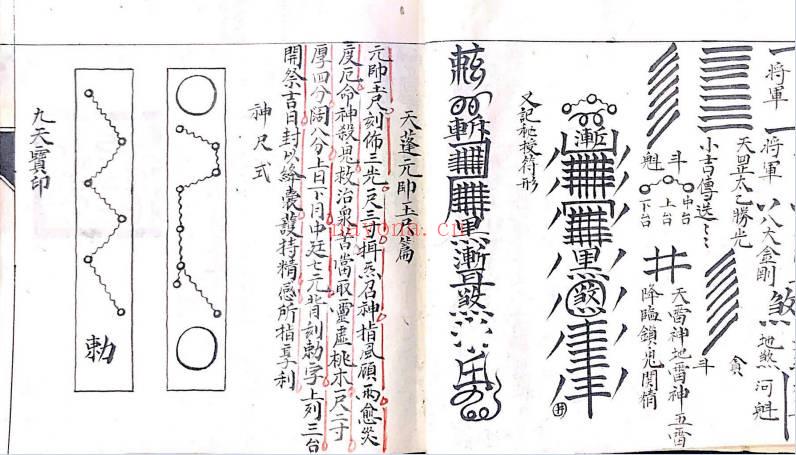 將軍
將軍
八大金剛
地煞
河魁
天罡太乙勝光
小吉傳送
貪
斗
斗
魁
中台
上台
下台
天雷神地雷神五雷
降臨鎖鬼関精
漸
黑
煞
又記秘授符形
斬
黑
漸
煞
天蓬元帥玉尺篇
元帥玉尺刻佈三光一尺三寸揖炁召神指風顧雨愈災
度厄命神殺鬼救治眾苦當取靈虛桃木尺二寸
厚四分闊八分上日下月中廷七元背刻勅字上列三台
開祭吉日封以絳囊護持精感所指享利
神尺式
勅
九天寶印
nayona.cn